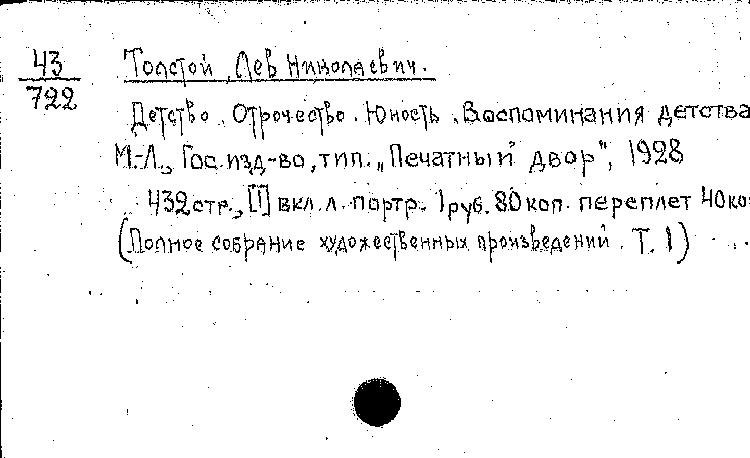 43
722
Толстой, Лев Николаевич.
Детство. Отрочество. Юность. Воспоминания детства
М.-Л., Гос. изд-во, тип. „Печатный двор", 1928
432 стр., [1] вкл. л. портр. 1 руб. 80 коп. переплет 40 ко
(Полное собрание художественных произведений. Т. 1)